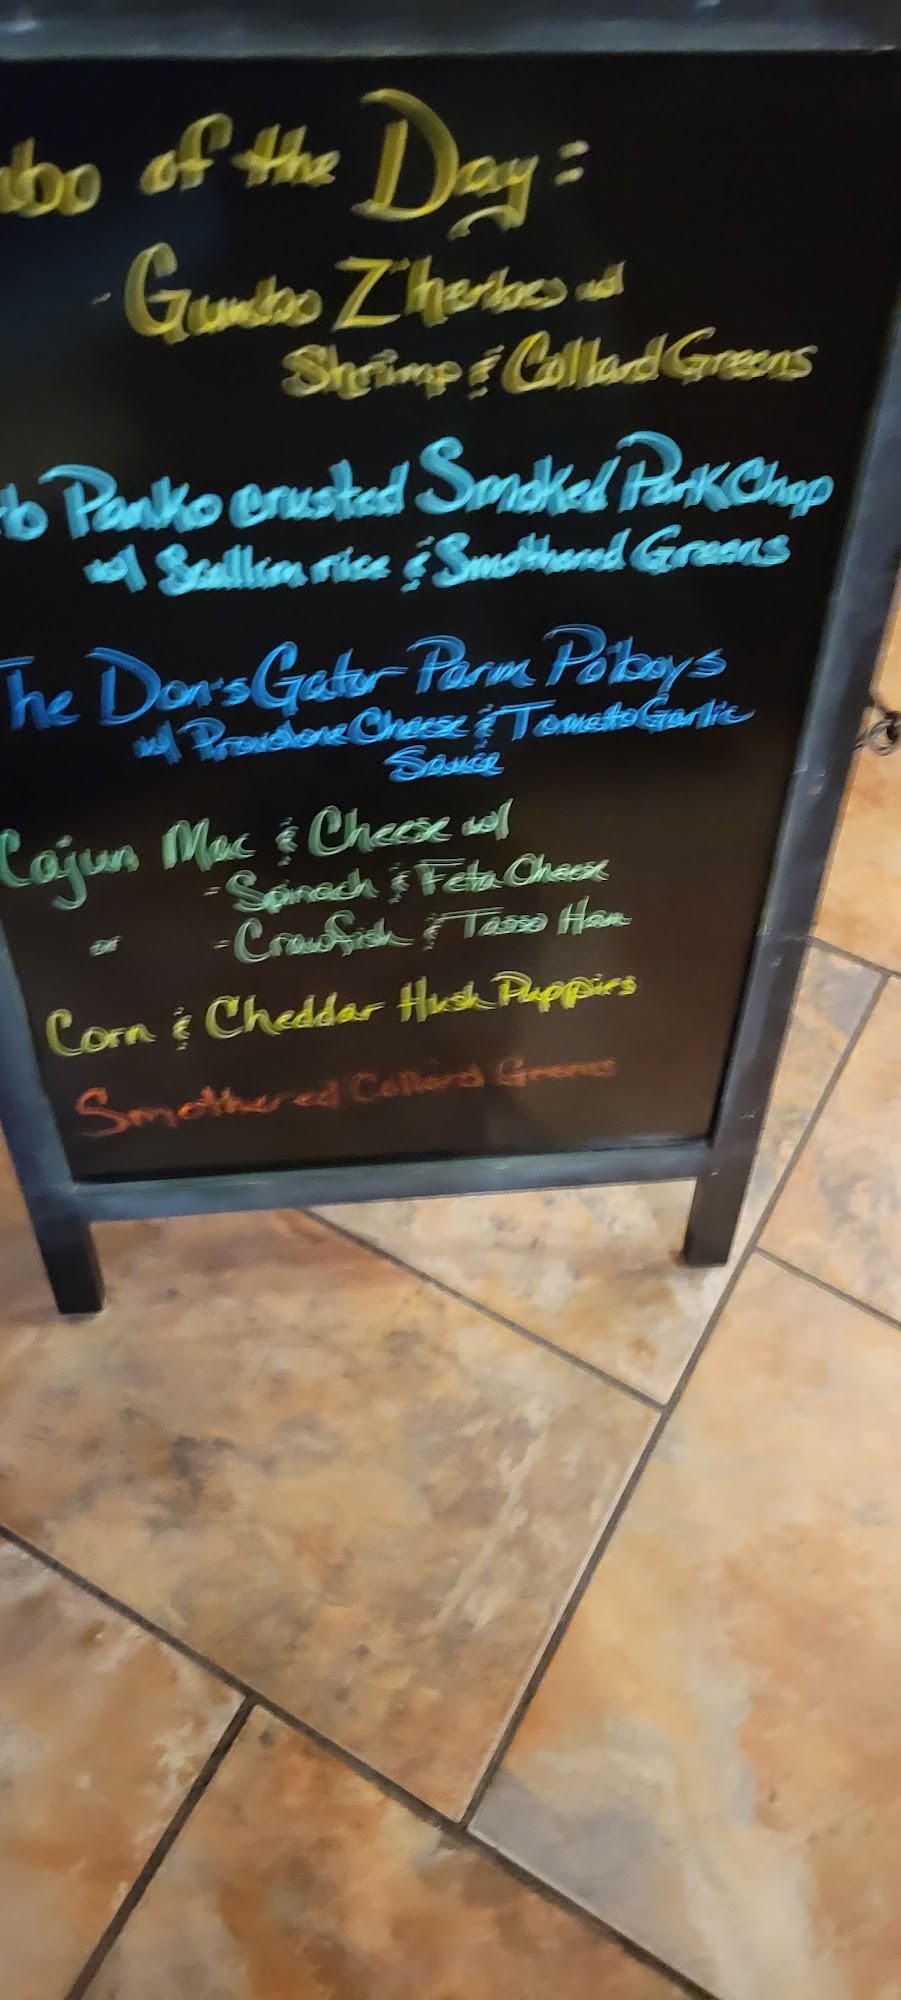 of the Day:
- Gumbo Z'herbes w/
Shrimp & Collard Greens
Panko crusted Smoked Pork Chop
w/ Scallion rice & Smothered Greens
The Don's Gator Parm Po'boys
w/ Provolone Cheese & Tomato Garlic
Sauce
Cajun Mac & Cheese w/
- Spinach & Feta Cheese
or - Crawfish & Tasso Ham
Corn & Cheddar Hush Puppies
Smothered Collard Greens